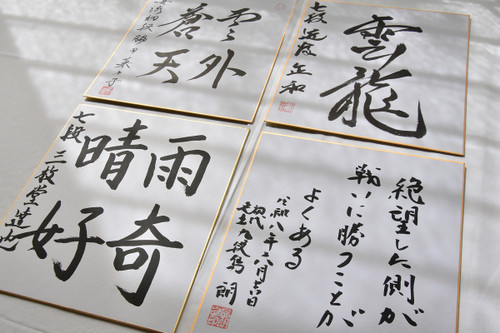 雲龍
七段 近藤正和
雲外
蒼天
雨奇
晴好
七段 三枚堂達也
絶望した側が
戦いに勝つことが
よくある
令和八年六月吉日
初代